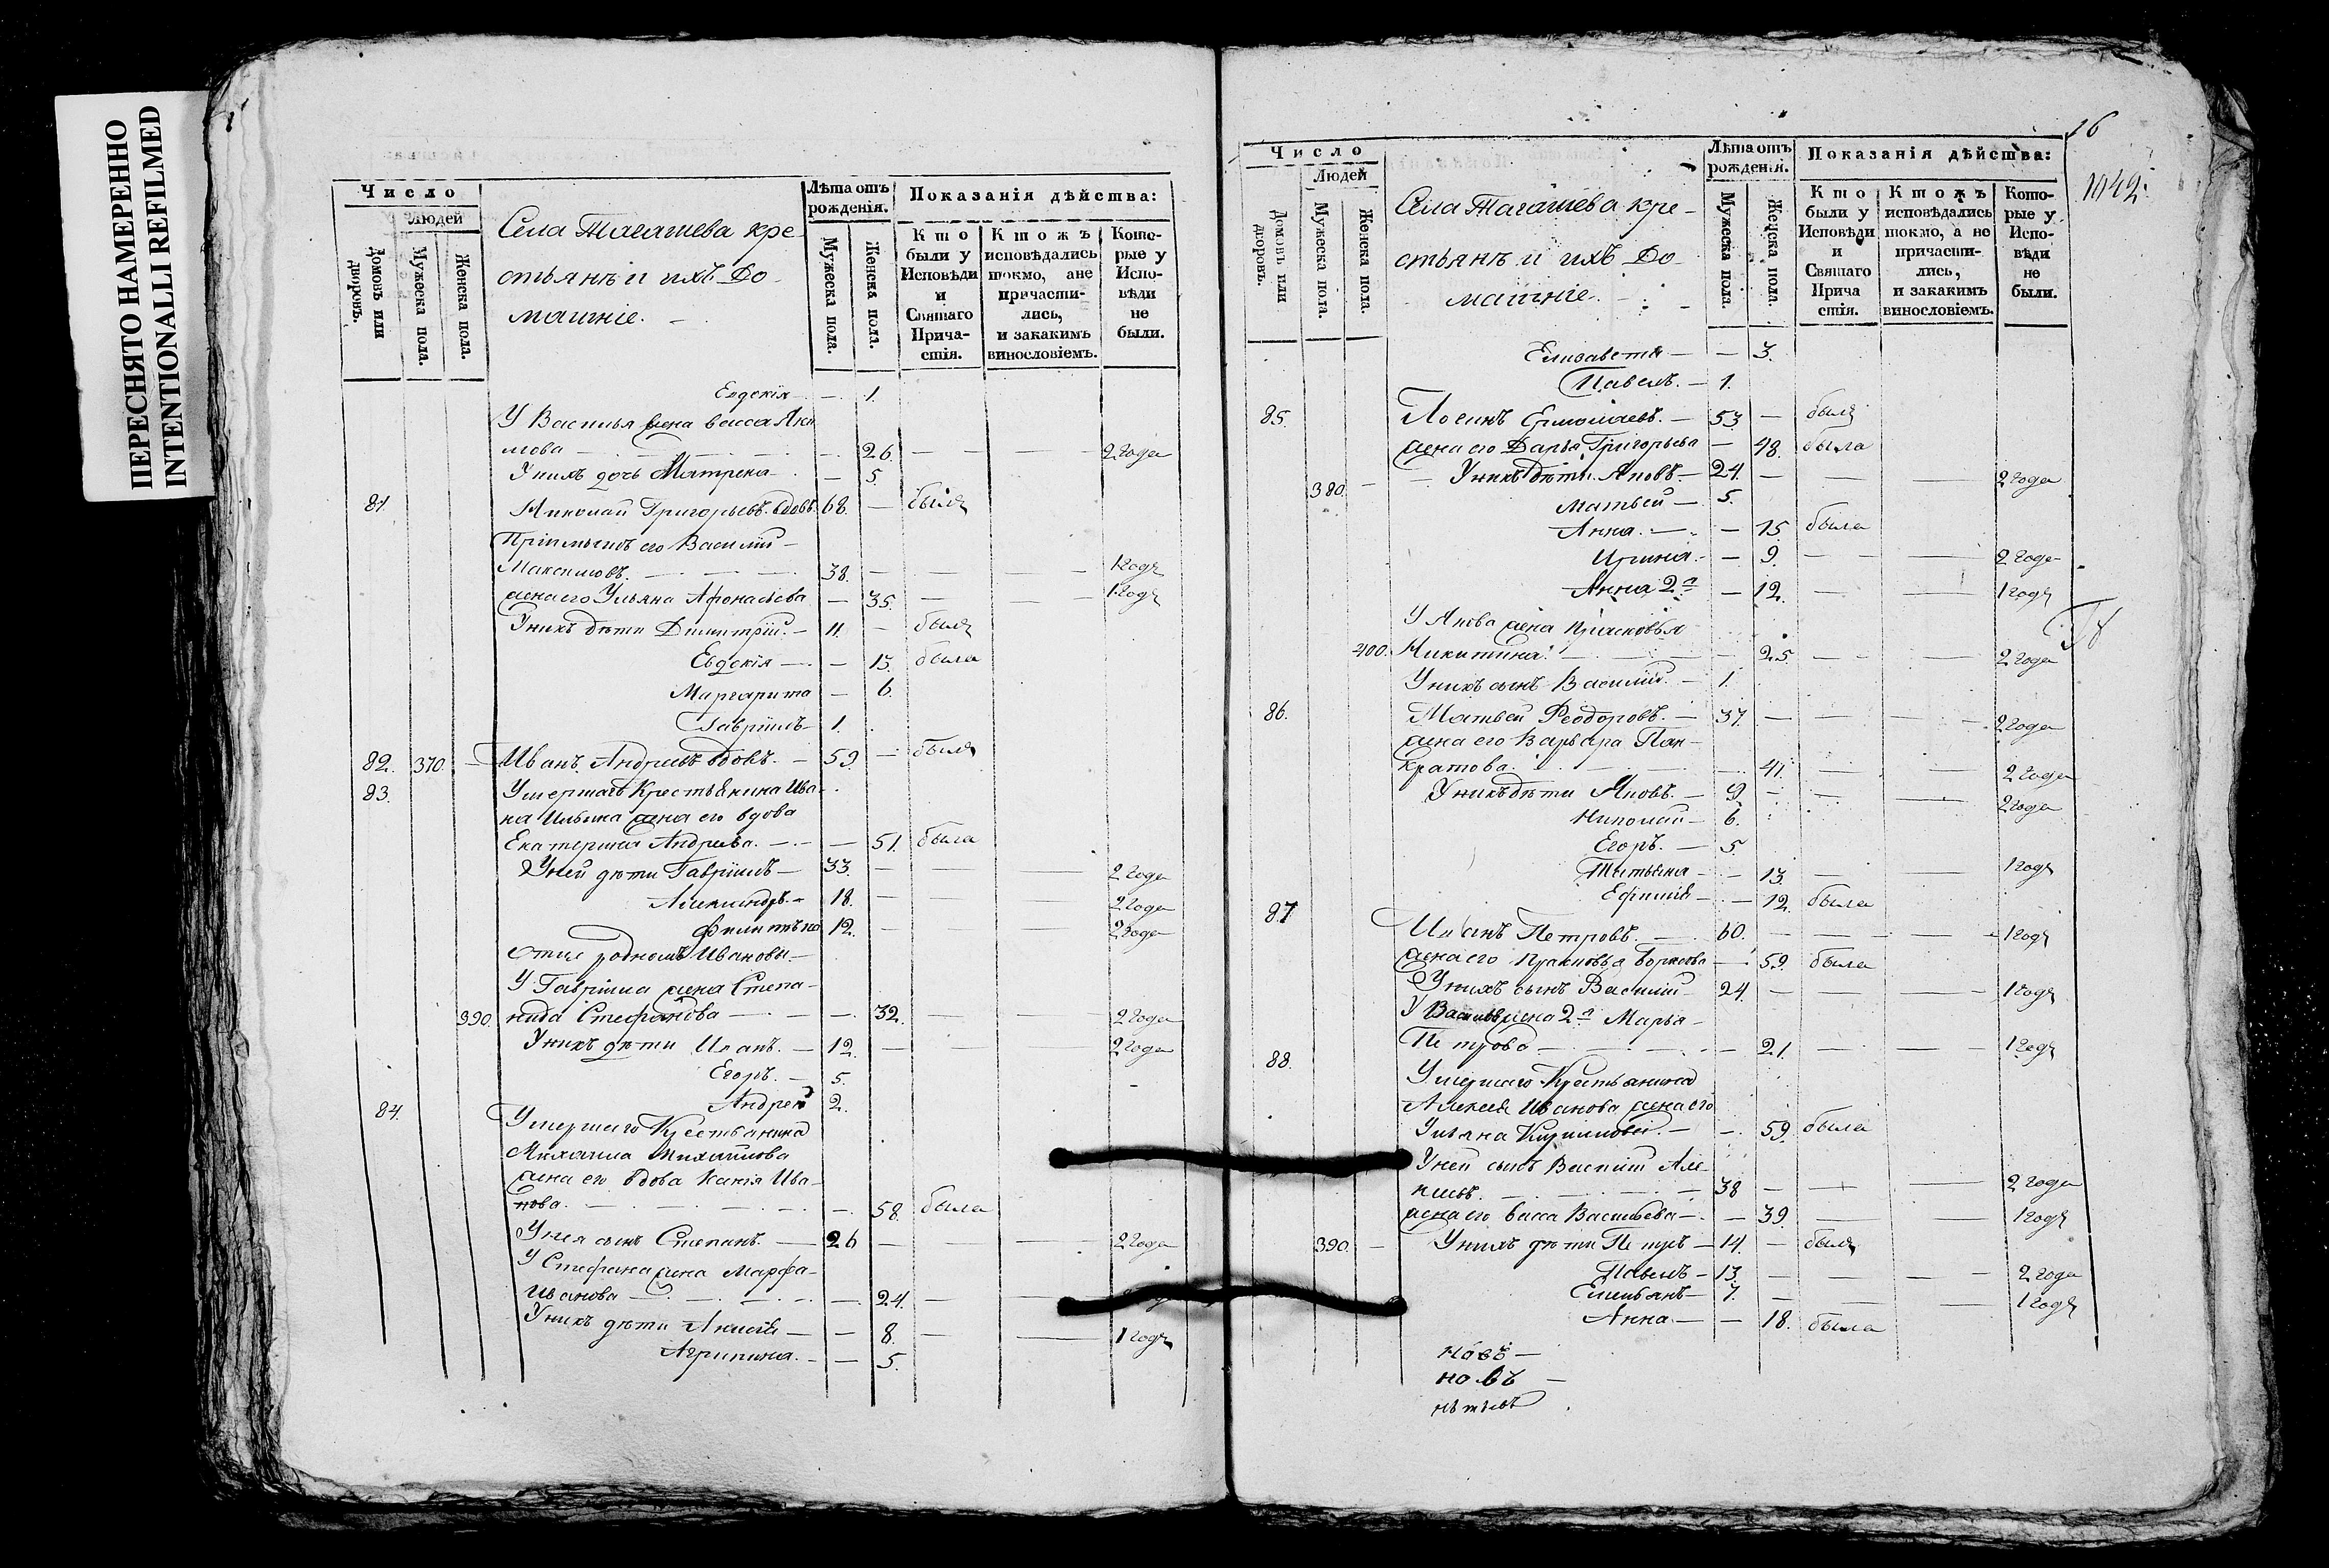 ПЕРЕСНЯТО НАМЕРЕННО
INTENTIONALLI REFILMED
Число
Людей
Домовъ или дворовъ.
Мужеска пола.
Женска пола.
Села Тагашева кре-
стьянъ и ихъ До-
машніе. —
Лѣта отъ рожденія.
Мужеска пола.
Женска пола.
Показанія дѣйства:
Кто были у Исповѣди и Святаго Причастія.
Ктожъ исповѣдались токмо, а не причастились, и закакимъ винословіемъ.
Которые у Исповѣди не были.
Евдокія — — 1.
У Василья жена Васса Яки
мова — — 26. — — 2 года
У нихъ дочь Матрена — — 5.
81. Николай Григорьевъ вдовъ. 68. — былъ
Пріимышъ его Василій —
Максимовъ. — 38. — — — 1 годъ
жена его Ульяна Афонасьева — 35. — — 1 годъ
У нихъ дѣти Димитрій. — 11. — былъ
Евдокія — — 15. была
Маргарита — 6.
Гавріилъ — 1.
82. 370. — Иванъ Андреевъ вдовъ. — 59. — былъ
83. Умершаго Крестьянина Ива-
на Ильина жена его вдова
Екатерина Андреева. — — 51. была
У ней дѣти Гавріилъ — 33. — — — 2 года
Александръ. — 18. — — — 2 года
Филиптъ по 12. — — 2 года
отце родномъ Ивановы. —
У Гавріила жена Степа-
390. нида Стефанова — — 32. — — 2 года
У нихъ дѣти Иванъ. — 12. — — 2 года
Егоръ. — 5.
Андрей 2.
84. Умершаго Крестьянина
Михаила Михайлова
жена его вдова Ксенія Ива-
нова. — — 58. была
У нея сынъ Степанъ. — 26 — — — 2 года
У Стефана жена Марфа —
Иванова — — 24. —
У нихъ дѣти Анисія — — 8. — — 1 годъ
Агрипина. — — 5.
16
1042.
Число
Людей
Домовъ или дворовъ.
Мужеска пола.
Женска пола.
Села Тагашева кре-
стьянъ и ихъ До-
машніе. —
Лѣта отъ рожденія.
Мужеска пола.
Женска пола.
Показанія дѣйства:
Кто были у Исповѣди и Святаго Причастія.
Ктожъ исповѣдались токмо, а не причастились, и закакимъ винословіемъ.
Которые у Исповѣди не были.
Елизавета — — 3.
Павелъ. — 1.
85. Ермолаевъ. — 53. — былъ
жена его Дарья Григорьева — 48. была
380. — У нихъ дѣти Яковъ. — 24. — — 2 года
Матвей — 5.
Анна. — — 15. была
Ирина. — — 9. — — 2 года
Анна 2я — 12. — — 1 годъ
У Якова жена Прасковья
400. Никитина. — — 25. — — 2 года
У нихъ сынъ Василій. — 1.
86. Матвей Феодоровъ. — 37. — — — 2 года
жена его Варвара Пан-
кратова. — — 41. — — 2 года
У нихъ дѣти Яковъ. — 9. — — — 2 года
Николай — 6.
Егоръ. — 5.
Татьяна — — 13. — — 1 годъ
Ефимія — — 12. была
87. Иванъ Петровъ. — 60. — — — 1 годъ
жена его Прасковья Борисова — 59. была
У нихъ сынъ Василій — 24. — — — 1 годъ
У Василья жена 2я Марья —
Петрова — — 21. — — 1 годъ
88. Умершаго Крестьянина
Алексея Иванова жена его
Ульяна Кирилова. — — 59. была
У ней сынъ Василій Але-
ксеевъ. — 38 — — — 2 года
жена его Васса Васильева — — 39. — — 1 годъ
390. — У нихъ дѣти Петръ — 14. — былъ
Павелъ — 13. — — — 2 года
Емельянъ — 7. — — — 1 годъ
Анна — — 18. была
новъ —